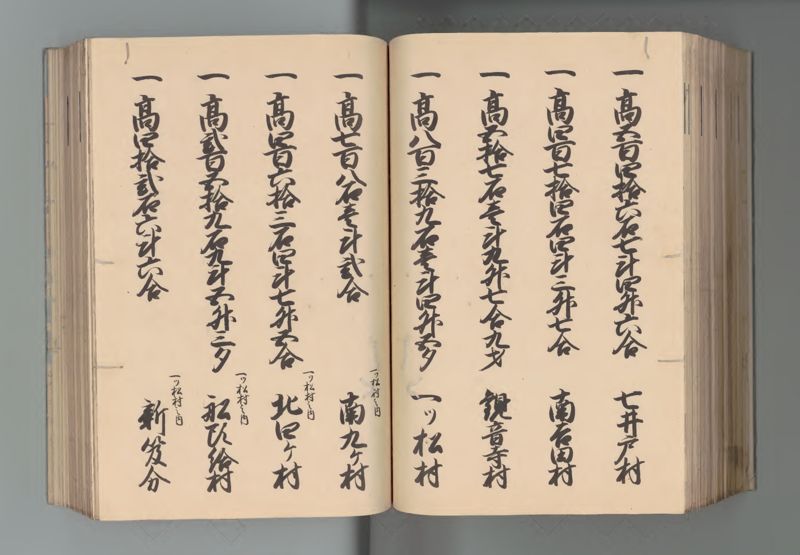 一 高五百四拾六石七斗四升六合 七井戸村
一 高四百七拾四石四斗三升七合 南吉田村
一 高五拾七石壱斗九升七合九才 観音寺村
一 高八百三拾九石壱斗四升五夕 一ツ松村
一 高七百八石壱斗弐合 一ツ松村之内 南九ケ村
一 高四百六拾三石四斗七升五合 一ツ松村之内 北四ケ村
一 高弐百五拾九石九斗五升三夕 一ツ松村之内 船頭給村
一 高四拾弐石六斗六合 一ツ松村之内 新笈分